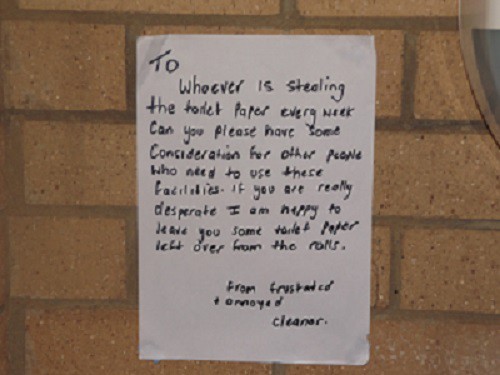 To
Whoever is stealing
the toilet Paper every week
Can you please have some
Consideration for other people
who need to use these
facilities. if you are really
desperate I am happy to
leave you some toilet Paper
left over from the rolls.
From frustrated
+ annoyed
cleaner.